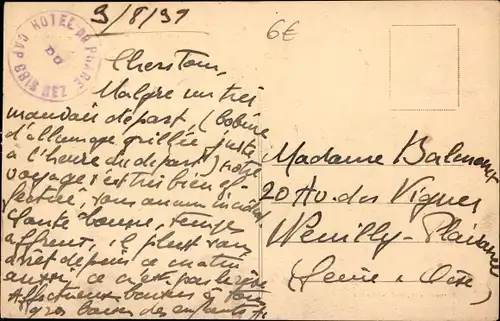 9/8/31
6€
HOTEL DU PHARE
DU
CAP GRIS NEZ
Chers Tous,
Malgré un très
mauvais départ (bobine
d'allumage grillée juste
à l'heure du départ) notre
voyage s'est très bien ef-
fectué, sans aucun incident.
Santé bonne, temps
affreux, il pleut sans
arrêt depuis ce matin
aussi, ce n'est pas le rêve
Affectueux baisers à tous
gros baisers des enfants
Madame
20 Av. des Vignes
Neuilly-Plaisance
(Seine & Oise)